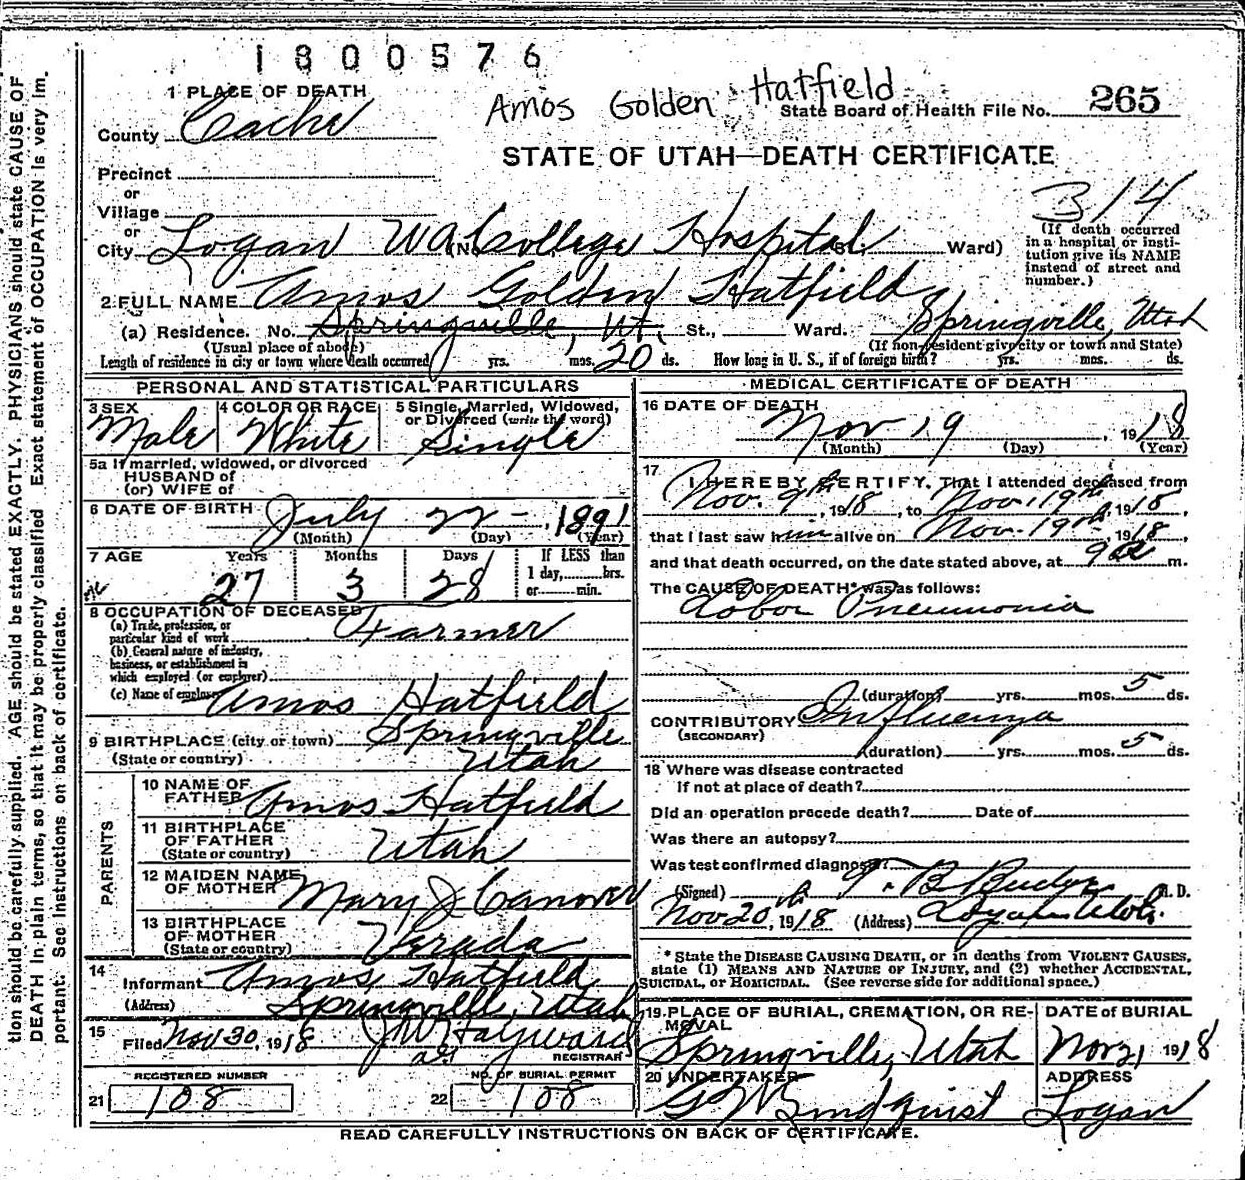 1800576
Amos Golden Hatfield
State Board of Health File No. 265
STATE OF UTAH—DEATH CERTIFICATE
1 PLACE OF DEATH
County Cache
Precinct
or
Village
or
City Logan (No. College Hospital St. Ward)
314
(If death occurred in a hospital or institution give its NAME instead of street and number.)
2 FULL NAME Amos Golden Hatfield
(a) Residence. No. Springville, Ut. St., Ward. Springville, Utah
(Usual place of abode) (If non-resident give city or town and State)
Length of residence in city or town where death occurred yrs. mos. 20 ds. How long in U. S., if of foreign birth? yrs. mos. ds.
PERSONAL AND STATISTICAL PARTICULARS
3 SEX 4 COLOR OR RACE 5 Single, Married, Widowed, or Divorced (write the word)
Male White Single
5a If married, widowed, or divorced
HUSBAND of
(or) WIFE of
6 DATE OF BIRTH July 22 - , 1891
(Month) (Day) (Year)
7 AGE Years Months Days If LESS than
1 day, hrs.
or min.
27 3 28
8 OCCUPATION OF DECEASED
(a) Trade, profession, or
particular kind of work Farmer
(b) General nature of industry,
business, or establishment in
which employed (or employer)
(c) Name of employer Amos Hatfield
9 BIRTHPLACE (city or town) Springville
(State or country) Utah
PARENTS
10 NAME OF
FATHER Amos Hatfield
11 BIRTHPLACE
OF FATHER
(State or country) Utah
12 MAIDEN NAME
OF MOTHER Mary J Canover
13 BIRTHPLACE
OF MOTHER
(State or country)
14
Informant Amos Hatfield
(Address) Springville, Utah
15
Filed Nov 30, 1918 J M Hayward
REGISTRAR
REGISTERED NUMBER NO. OF BURIAL PERMIT
21 108 22 108
MEDICAL CERTIFICATE OF DEATH
16 DATE OF DEATH
Nov 19 , 1918
(Month) (Day) (Year)
17
I HEREBY CERTIFY, That I attended deceased from
Nov. 9th, 1918, to Nov. 19th, 1918,
that I last saw him alive on Nov. 19th, 1918,
and that death occurred, on the date stated above, at 9 a m.
The CAUSE OF DEATH* was as follows:
Lobar Pneumonia
(duration) yrs. mos. 5 ds.
CONTRIBUTORY Influenza
(SECONDARY)
(duration) yrs. mos. 5 ds.
18 Where was disease contracted
If not at place of death?
Did an operation precede death? Date of
Was there an autopsy?
Was test confirmed diagnosis?
(Signed) T. B. Budge M. D.
Nov 20th, 1918 (Address) Logan Utah.
* State the DISEASE CAUSING DEATH, or in deaths from VIOLENT CAUSES,
state (1) MEANS AND NATURE OF INJURY, and (2) whether ACCIDENTAL,
SUICIDAL, or HOMICIDAL. (See reverse side for additional space.)
19 PLACE OF BURIAL, CREMATION, OR REMOVAL DATE of BURIAL
Springville, Utah Nov 21, 1918
20 UNDERTAKER ADDRESS
G W Lindquist Logan
READ CAREFULLY INSTRUCTIONS ON BACK OF CERTIFICATE.
tion should be carefully supplied. AGE should be stated EXACTLY. PHYSICIANS should state CAUSE OF
DEATH in plain terms, so that it may be properly classified. Exact statement of OCCUPATION is very im-
portant. See Instructions on back of certificate.